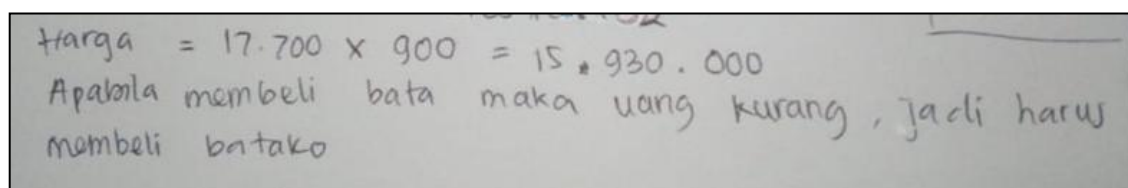 Harga = 17.700 x 900 = 15.930.000
Apabila membeli bata maka uang kurang, jadi harus
membeli batako